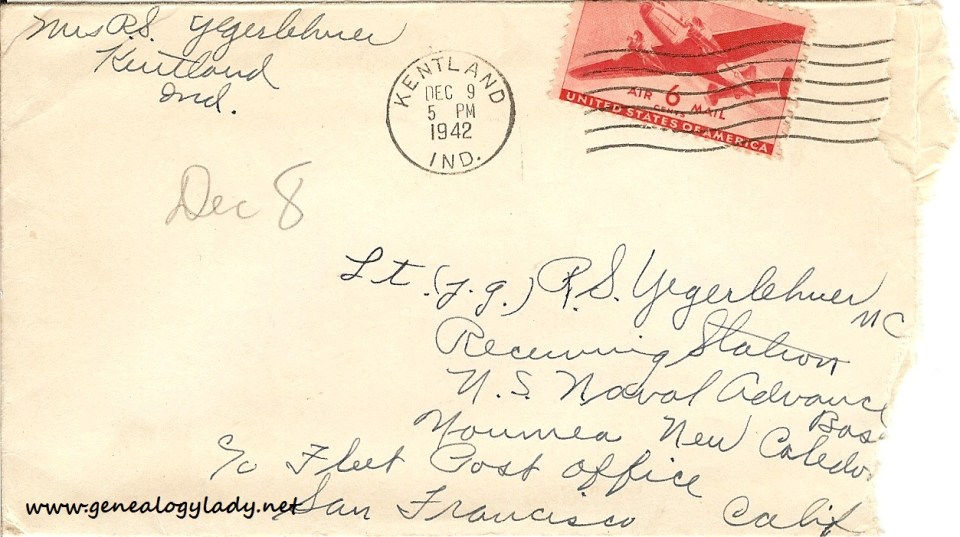 Mrs R.S. Yegerlehner
Kentland
Ind.
KENTLAND
DEC 9
5 PM
1942
IND.
AIR 6 MAIL
CENTS
UNITED STATES OF AMERICA
Dec 8
Lt. (j.g.) R.S. Yegerlehner
MC
Receiving Station
U.S. Naval Advance
Bas
Noumea New Caledo
c/o Fleet Post Office
San Francisco Calif
www.genealogylady.net